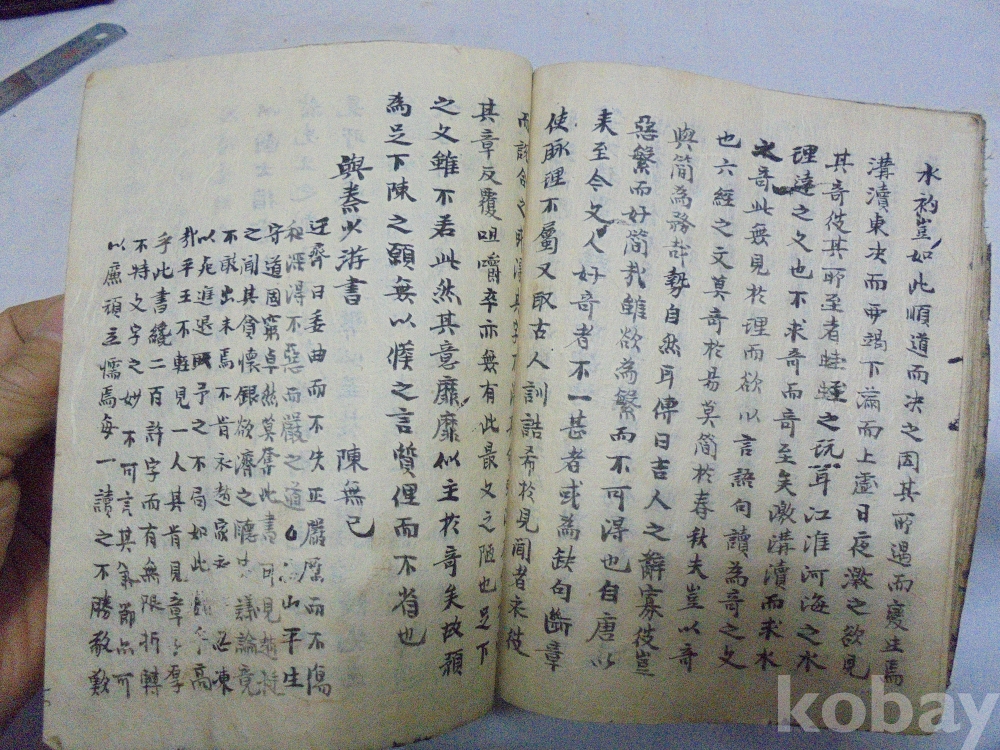 水初豈如此順道而决之因其所遇而變生焉
溝瀆東决而西竭下滿而上虛日夜激之欲見
其奇彼其所至者蛙蛭之玩耳江淮河海之水
理達之文也不求奇而奇至矣激溝瀆而求水
之奇此無見於理而欲以言語句讀為奇之文
也六經之文莫奇於易莫簡於春秋夫豈以奇
與簡為務哉勢自然耳傳曰吉人之辭寡彼豈
惡繁而好簡哉雖欲為繁而不可得也自唐以
来至今文人好奇者不一甚者或為缺句斷章
使脉理不屬又取古人訓詁希於見聞者衣被
而説合之
其章反覆咀嚼卒亦無有此最文之陋也足下
之文雖不若此然其意靡靡似主於奇矣故預
為足下陳之願無以僕之言質俚而不省也
與秦少游書 陳無己
迂齊曰委曲而不失正嚴厲而不傷
和深得不惡而嚴之道 山平生
守道固窮卓然莫奪此書可見趙挺
之聞其貧懷銀欲濟之聽其議論竟
不敢出未焉不肯衣趙家衣 凍
以死進退取予之不局如此 高
我平王不輕見一人其肯見章 厚
乎此書纔二百許字而有無限折轉
不特文字之妙不可言其氣節亦可
以㢘頑立懦焉每一讀之不勝敬歎
kobay